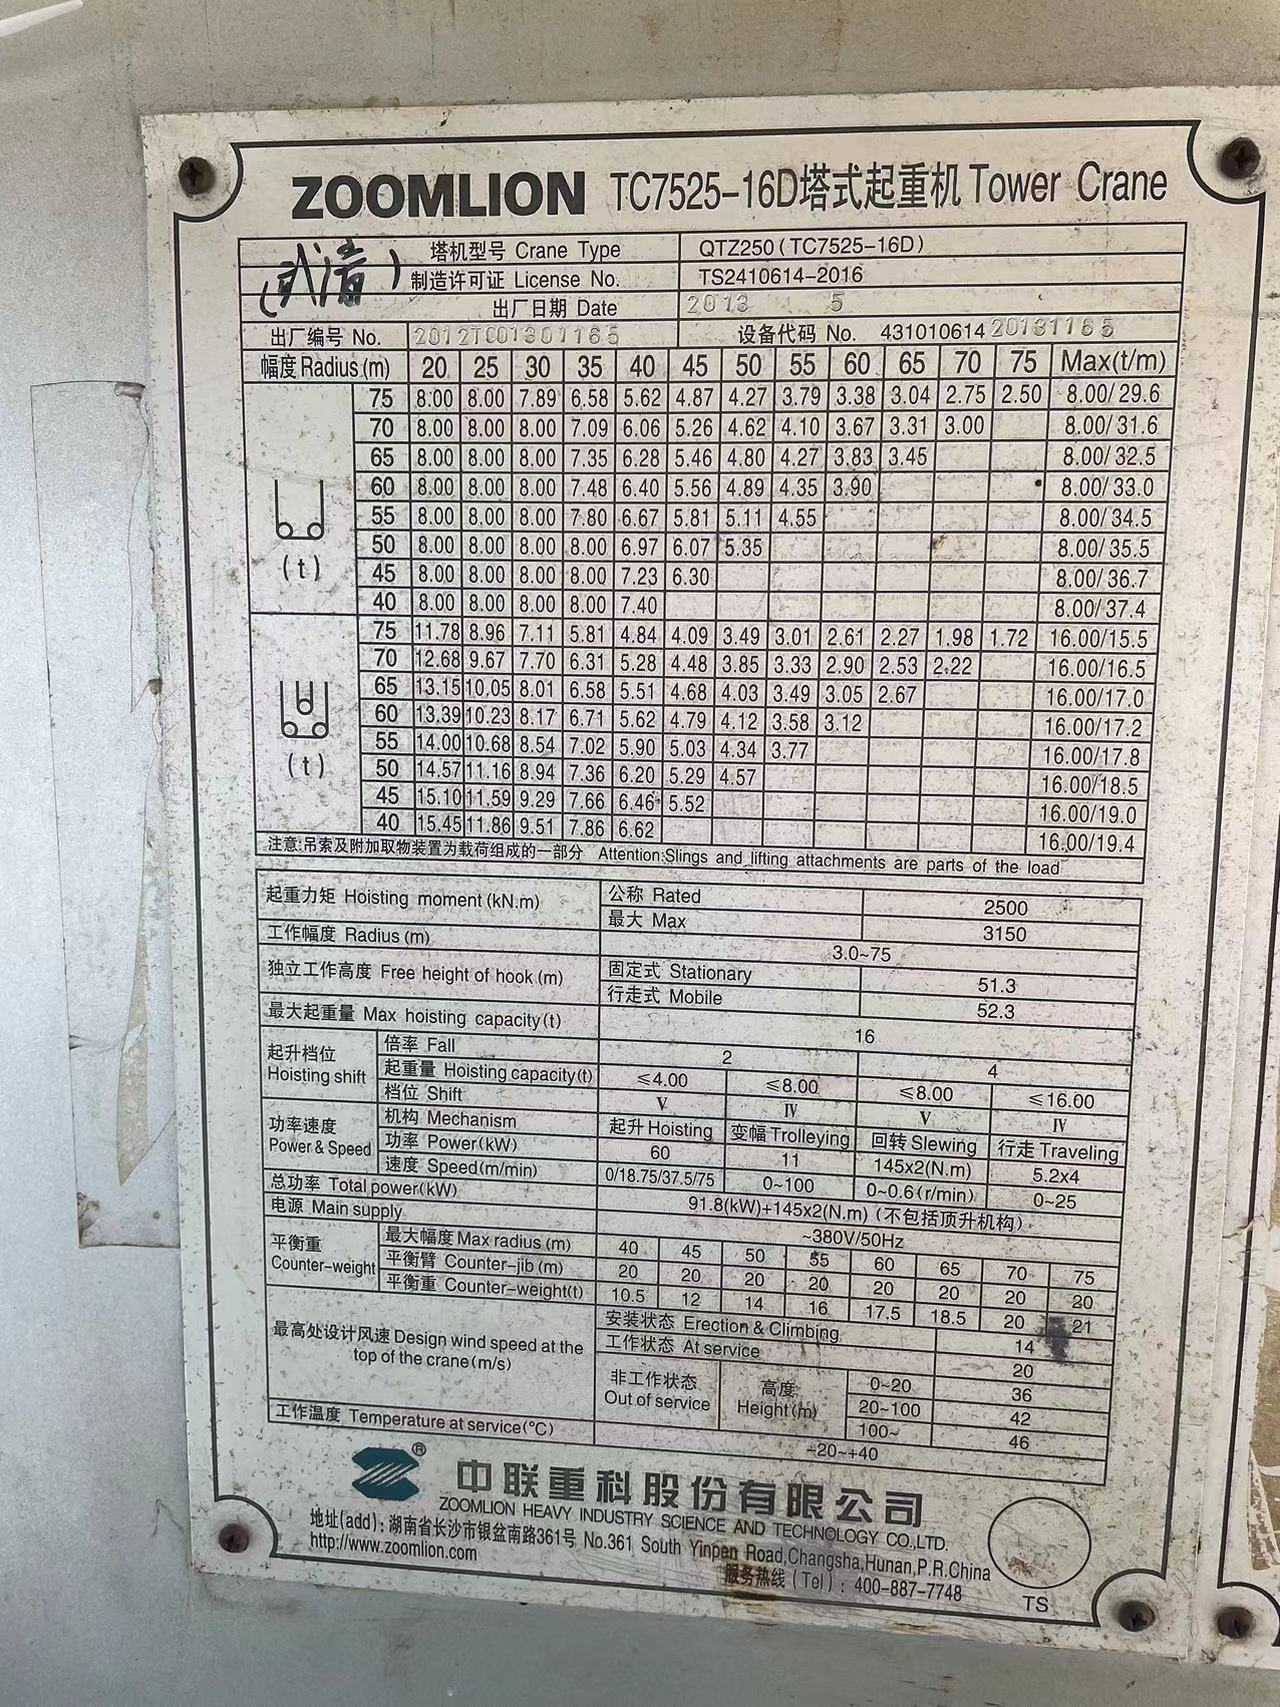 ZOOMLION TC7525-16D塔式起重机 Tower Crane
(武清)
塔机型号 Crane Type QTZ250(TC7525-16D)
制造许可证 License No. TS2410614-2016
出厂日期 Date 2013 5
出厂编号 No. 2012TC01301165 设备代码 No. 43101061420131165
幅度 Radius(m) 20 25 30 35 40 45 50 55 60 65 70 75 Max(t/m)
75 8.00 8.00 7.89 6.58 5.62 4.87 4.27 3.79 3.38 3.04 2.75 2.50 8.00/29.6
70 8.00 8.00 8.00 7.09 6.06 5.26 4.62 4.10 3.67 3.31 3.00 8.00/31.6
65 8.00 8.00 8.00 7.35 6.28 5.46 4.80 4.27 3.83 3.45 8.00/32.5
60 8.00 8.00 8.00 7.48 6.40 5.56 4.89 4.35 3.90 8.00/33.0
55 8.00 8.00 8.00 7.80 6.67 5.81 5.11 4.55 8.00/34.5
50 8.00 8.00 8.00 8.00 6.97 6.07 5.35 8.00/35.5
(t)
45 8.00 8.00 8.00 8.00 7.23 6.30 8.00/36.7
40 8.00 8.00 8.00 8.00 7.40 8.00/37.4
75 11.78 8.96 7.11 5.81 4.84 4.09 3.49 3.01 2.61 2.27 1.98 1.72 16.00/15.5
70 12.68 9.67 7.70 6.31 5.28 4.48 3.85 3.33 2.90 2.53 2.22 16.00/16.5
65 13.15 10.05 8.01 6.58 5.51 4.68 4.03 3.49 3.05 2.67 16.00/17.0
60 13.39 10.23 8.17 6.71 5.62 4.79 4.12 3.58 3.12 16.00/17.2
55 14.00 10.68 8.54 7.02 5.90 5.03 4.34 3.77 16.00/17.8
(t)
50 14.57 11.16 8.94 7.36 6.20 5.29 4.57 16.00/18.5
45 15.10 11.59 9.29 7.66 6.46 5.52 16.00/19.0
40 15.45 11.86 9.51 7.86 6.62 16.00/19.4
注意:吊索及附加取物装置为载荷组成的一部分 Attention:Slings and lifting attachments are parts of the load
起重力矩 Hoisting moment(kN.m) 公称 Rated 2500
最大 Max 3150
工作幅度 Radius(m) 3.0~75
独立工作高度 Free height of hook(m) 固定式 Stationary 51.3
行走式 Mobile 52.3
最大起重量 Max hoisting capacity(t) 16
起升档位 Hoisting shift 倍率 Fall 2 4
起重量 Hoisting capacity(t) ≤4.00 ≤8.00 ≤8.00 ≤16.00
档位 Shift V IV V IV
功率速度 Power & Speed 机构 Mechanism 起升 Hoisting 变幅 Trolleying 回转 Slewing 行走 Traveling
功率 Power(kW) 60 11 145x2(N.m) 5.2x4
速度 Speed(m/min) 0/18.75/37.5/75 0~100 0~0.6(r/min) 0~25
总功率 Total power(kW) 91.8(kW)+145x2(N.m)(不包括顶升机构)
电源 Main supply ~380V/50Hz
平衡重 Counter-weight 最大幅度 Max radius(m) 40 45 50 55 60 65 70 75
平衡臂 Counter-jib(m) 20 20 20 20 20 20 20 20
平衡重 Counter-weight(t) 10.5 12 14 16 17.5 18.5 20 21
最高处设计风速 Design wind speed at the top of the crane(m/s) 安装状态 Erection & Climbing 14
工作状态 At service 20
非工作状态 Out of service 高度 Height(m) 0~20 36
20~100 42
100~ 46
工作温度 Temperature at service(°C) -20~+40
® 中联重科股份有限公司
ZOOMLION HEAVY INDUSTRY SCIENCE AND TECHNOLOGY CO.,LTD.
地址(add): 湖南省长沙市银盆南路361号 No.361 South Yinpen Road,Changsha,Hunan,P.R.China
http://www.zoomlion.com 服务热线(Tel): 400-887-7748
TS